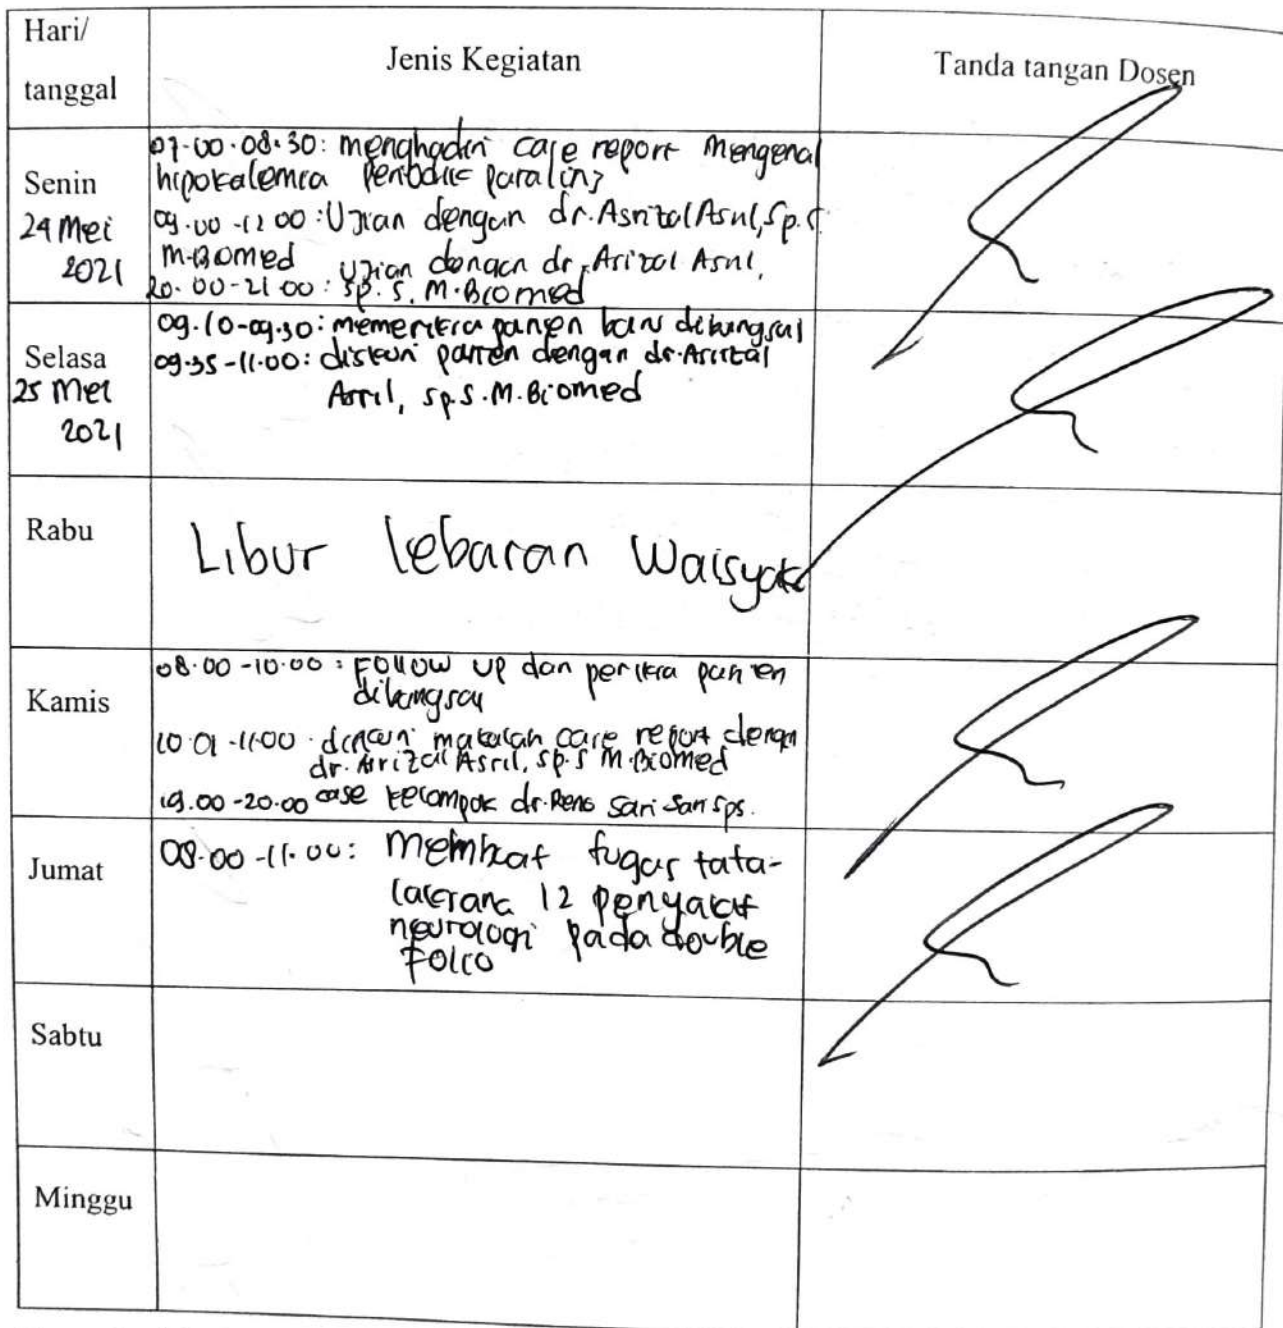 Hari/
tanggal
Jenis Kegiatan
Tanda tangan Dosen
Senin
24 Mei
2021
07.00-08.30: menghadiri case report mengenai
hipokalemia periodik paralins
09.00-12.00: Ujian dengan dr. Asrizal Asril, Sp.S.
M.Biomed
Ujian dengan dr. Arizal Asril,
20.00-21.00: Sp.S. M.Biomed
Selasa
25 Mei
2021
09.10-09.30: memeriksa pasien baru dibangsal
09.35-11.00: diskusi pasien dengan dr. Asrizal
Asril, Sp.S. M.Biomed
Rabu
Libur lebaran Waisyak
Kamis
08.00-10.00: Follow up dan periksa pasien
dibangsal
10.01-11.00: diskusi makalah case report dengan
dr. Arrizal Asril, Sp.S M.Biomed
19.00-20.00 case kelompok dr. Reno Sari Sari Sps.
Jumat
08.00-11.00: Membuat tugas tata-
laksana 12 penyakit
neurologi pada double
Folio
Sabtu
Minggu